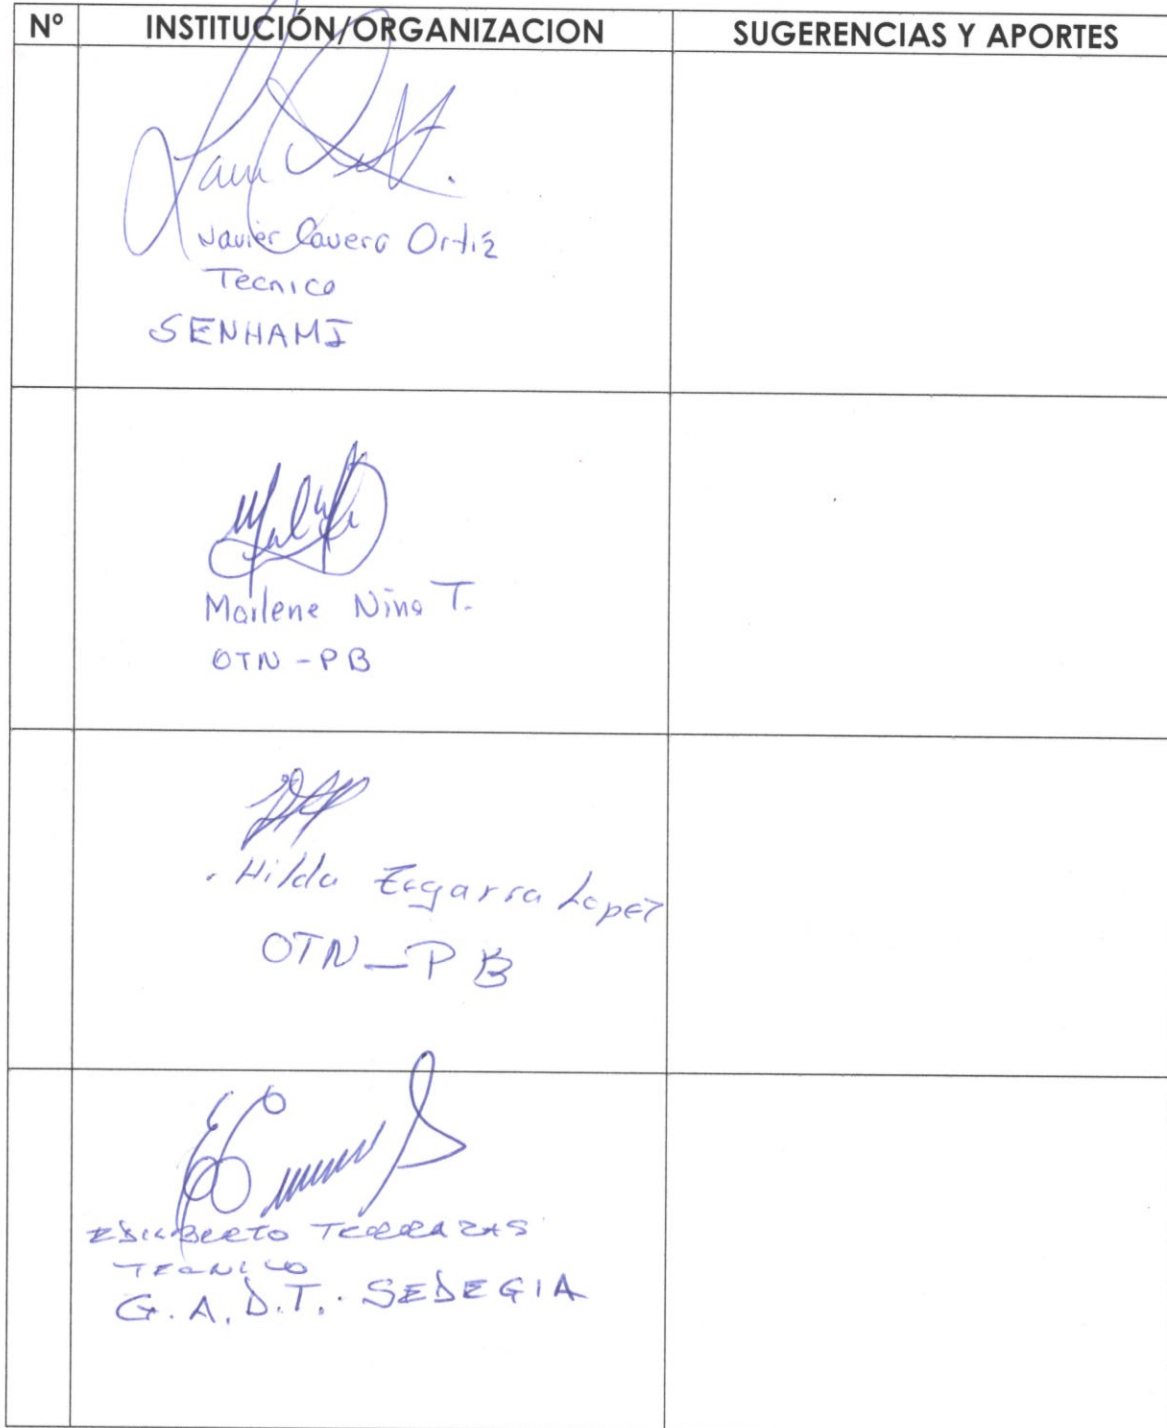 Nº INSTITUCIÓN/ORGANIZACION SUGERENCIAS Y APORTES
Javier Cavero Ortiz
Tecnico
SENHAMI
Marlene Nina T.
OTN - PB
Hilda Lopez
OTN - PB
TERRAZAS
TECNICO
G.A.D.T. SEDEGIA